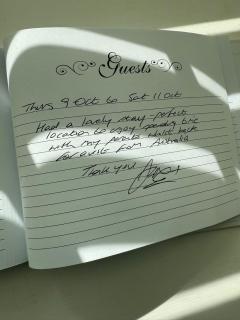 Guests
Thurs 9 Oct to Sat 11 Oct
Had a lovely stay - perfect
location to enjoy spending time
with my parents whilst back
for a visit from Australia
Thank you!